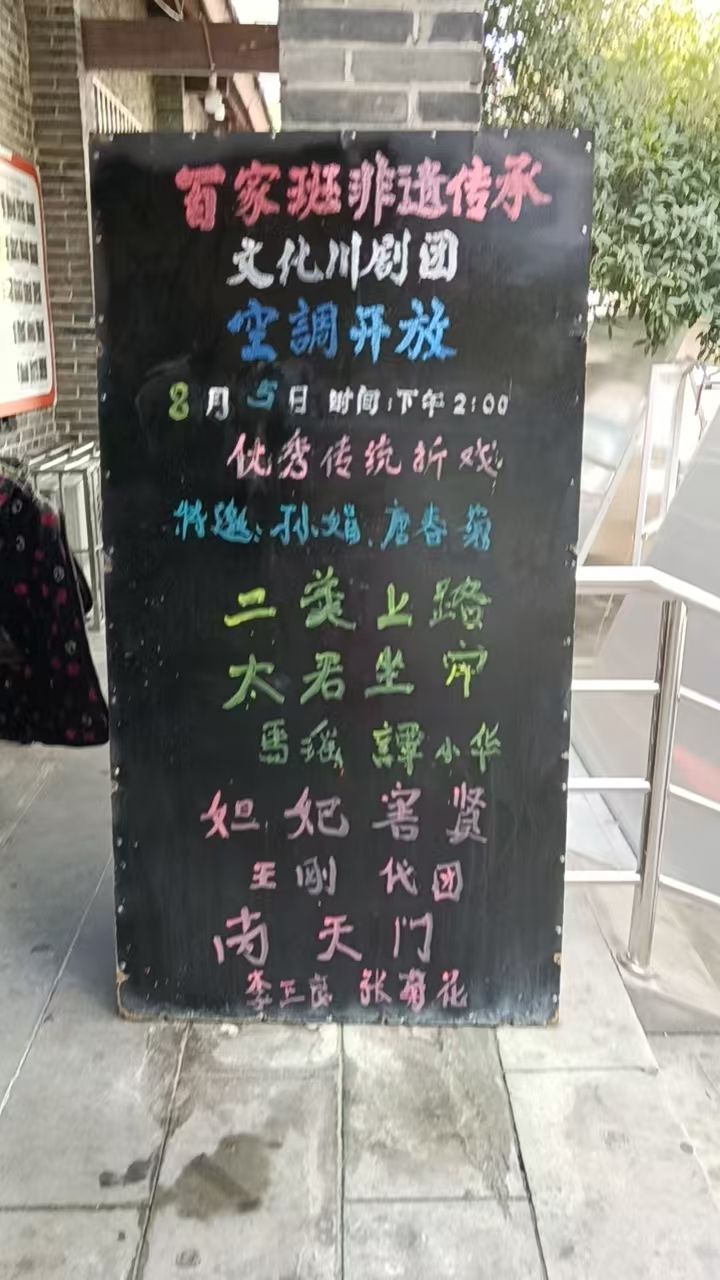 百家班非遗传承
文化川剧团
空調开放
8月5日 时间:下午2:00
优秀传统折戏
特邀:孙娟、唐春菊
二美上路
太君坐宫
馬瑶 譚小华
妲妃害贤
王刚 代团
南天门
李正良 张菊花